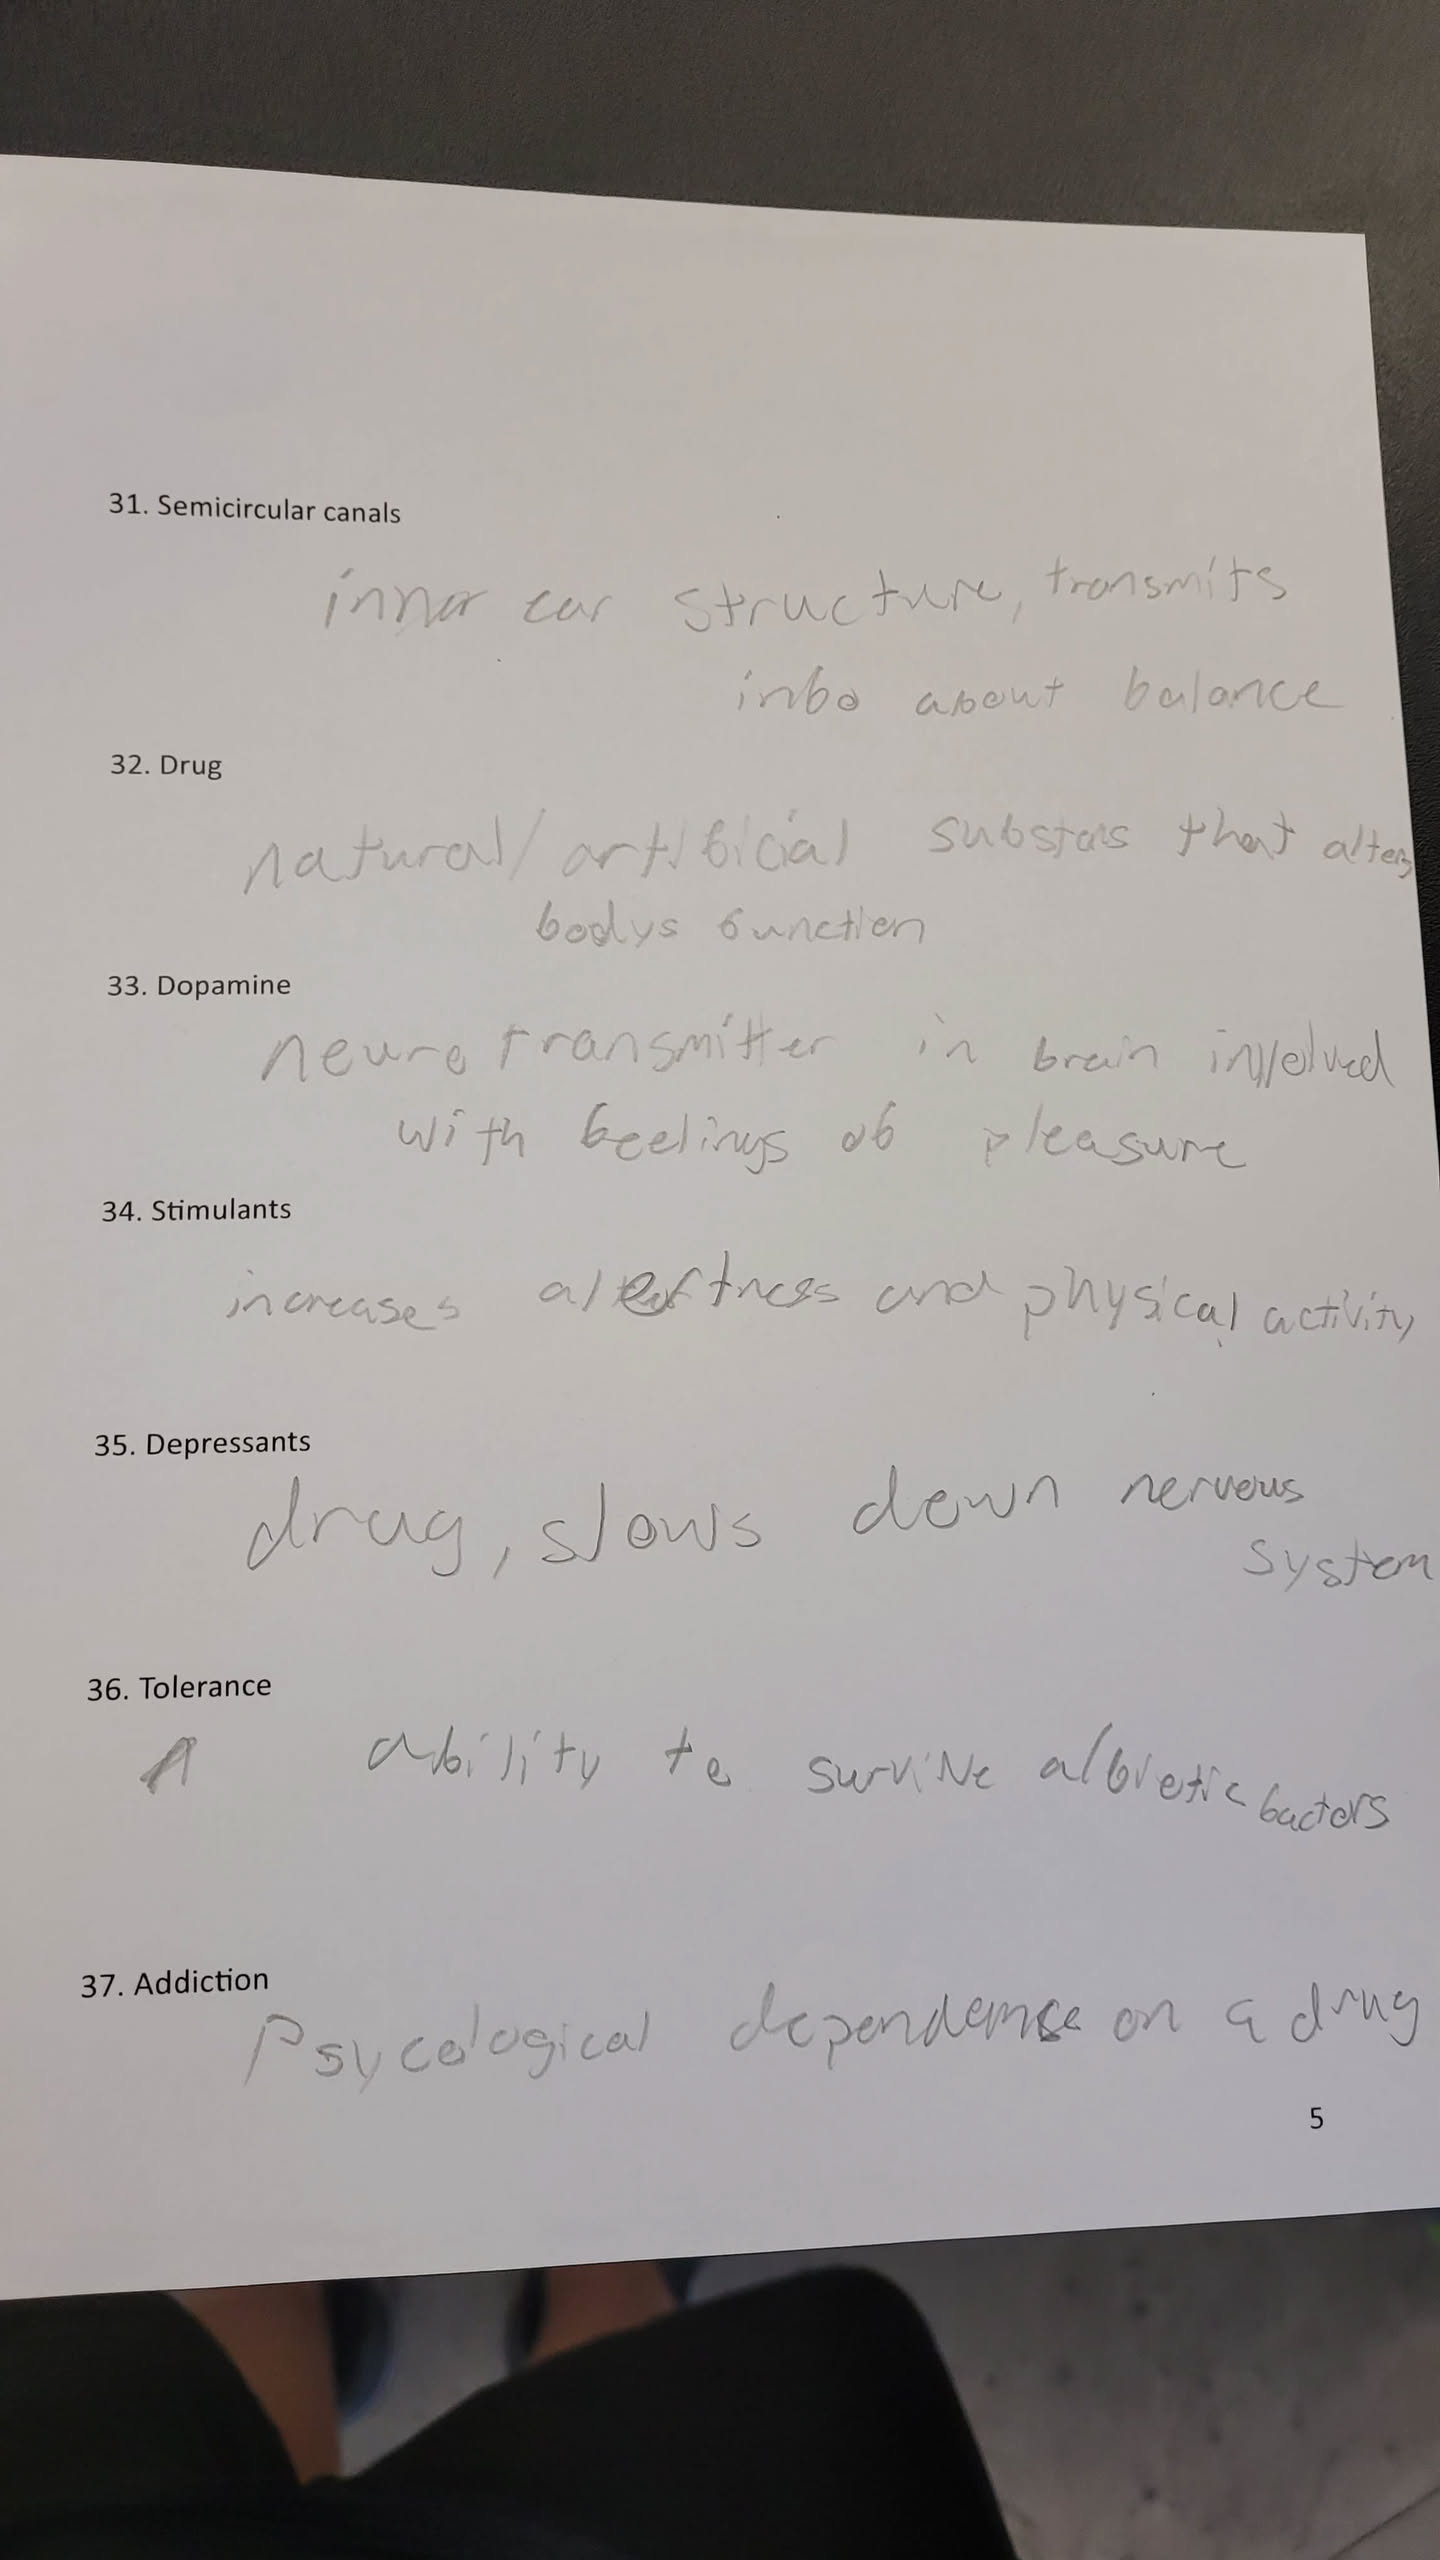 31. Semicircular canals
inner ear structure, transmits
info about balance
32. Drug
natural/artificial substans that alters
bodys function
33. Dopamine
neurotransmitter in brain involved
with feelings of pleasure
34. Stimulants
increases alertness and physical activity
35. Depressants
drug, slows down nervous
system
36. Tolerance
A ability to survive a/biotic factors
37. Addiction
Psycological dependence on a drug
5